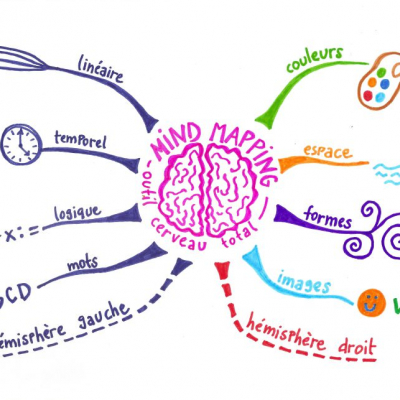 MIND MAPPING
~ outil cerveau total ~
linéaire
temporel
logique
x:=
mots
CD
hémisphère gauche
couleurs
espace
formes
images
hémisphère droit